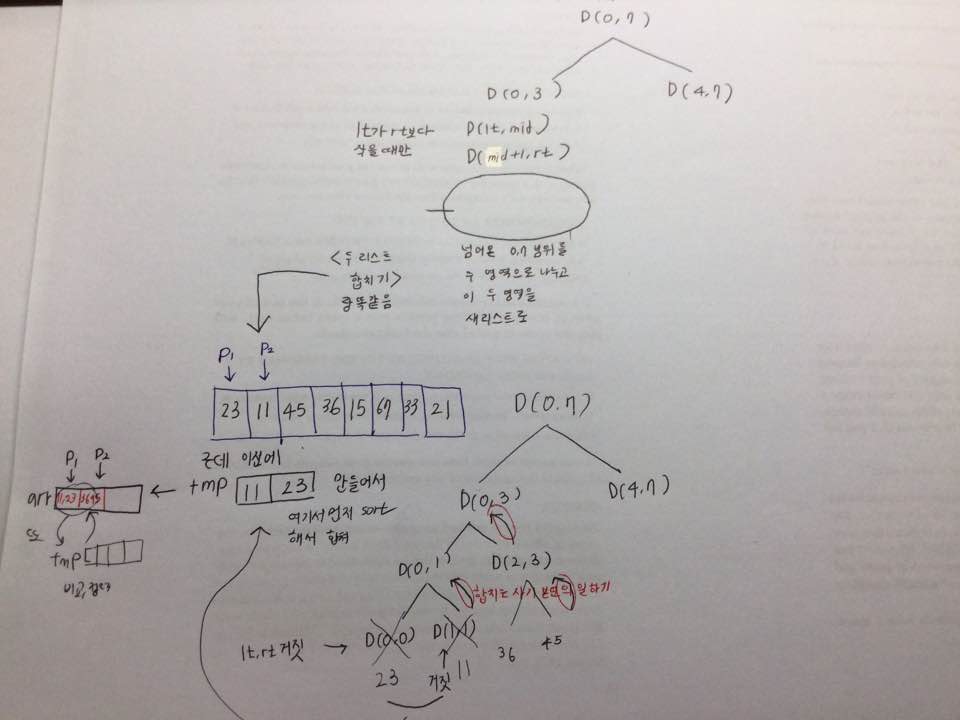 D(0,7)
D(0,3)
D(4,7)
lt가 rt보다
작을때만
D(lt,mid)
D(mid+1,rt)
<두 리스트
합치기>
랑똑같음
넘어온 0,7 범위를
두 영역으로 나누고
이 두 영역을
새리스트로
P1
P2
23 11 45 36 15 67 33 21
근데 이심에
tmp 11 23 만들어서
여기서먼저 sort
해서 합쳐
P1
P2
arr 11,23 36 45
또
tmp
D(0.7)
D(0,3)
D(4,7)
D(0,1)
D(2,3)
합치는 자기 본연의 일하기
lt,rt 거짓
D(0,0)
D(1,1)
23
거짓
11
36
45